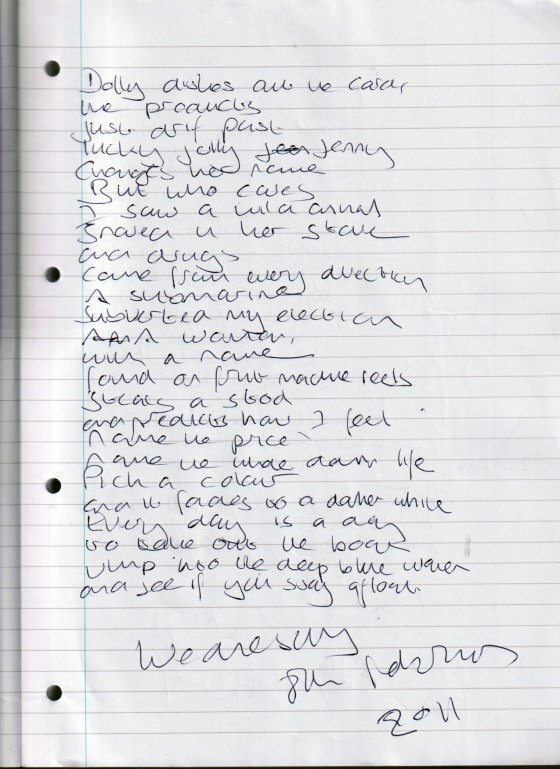 Dolly dishes out the card,
the products
just drif past
lucky jolly Jenny
Changes her name
But who cares
I saw a wild animal
Snared in her stare
and drugs
came from every direction
A submarine
subverted my election
A woman,
with a name
found on fruit machine reels
steals a stool
and predicts how I feel
name the price
name the whole damn life
Pick a colour
and it fades to a darker white
Every day is a day
to take out the boat
Jump into the deep blue water
and see if you stay afloat.
Wednesday
8th February
2011